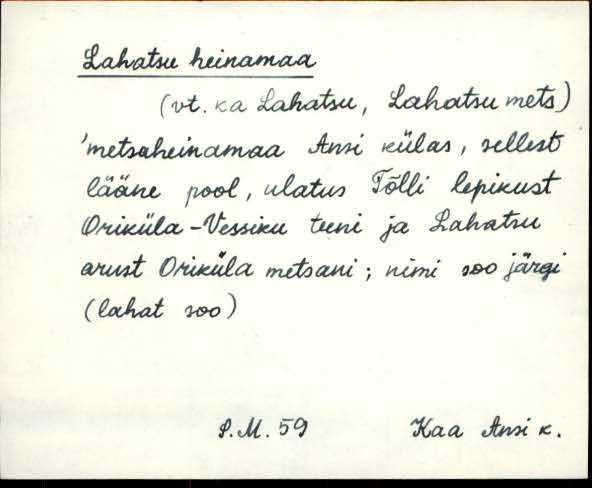 Lahatsu heinamaa
(vt. ka Lahatsu, Lahatsu mets)
'metsaheinamaa Ansi külas, sellest
lääne pool, ulatus Tõlli lepikust
Oriküla-Vessiku teeni ja Lahatsu
arust Oriküla metsani; nimi soo järgi
(lahat soo)
P.M. 59 Kaa Ansi k.